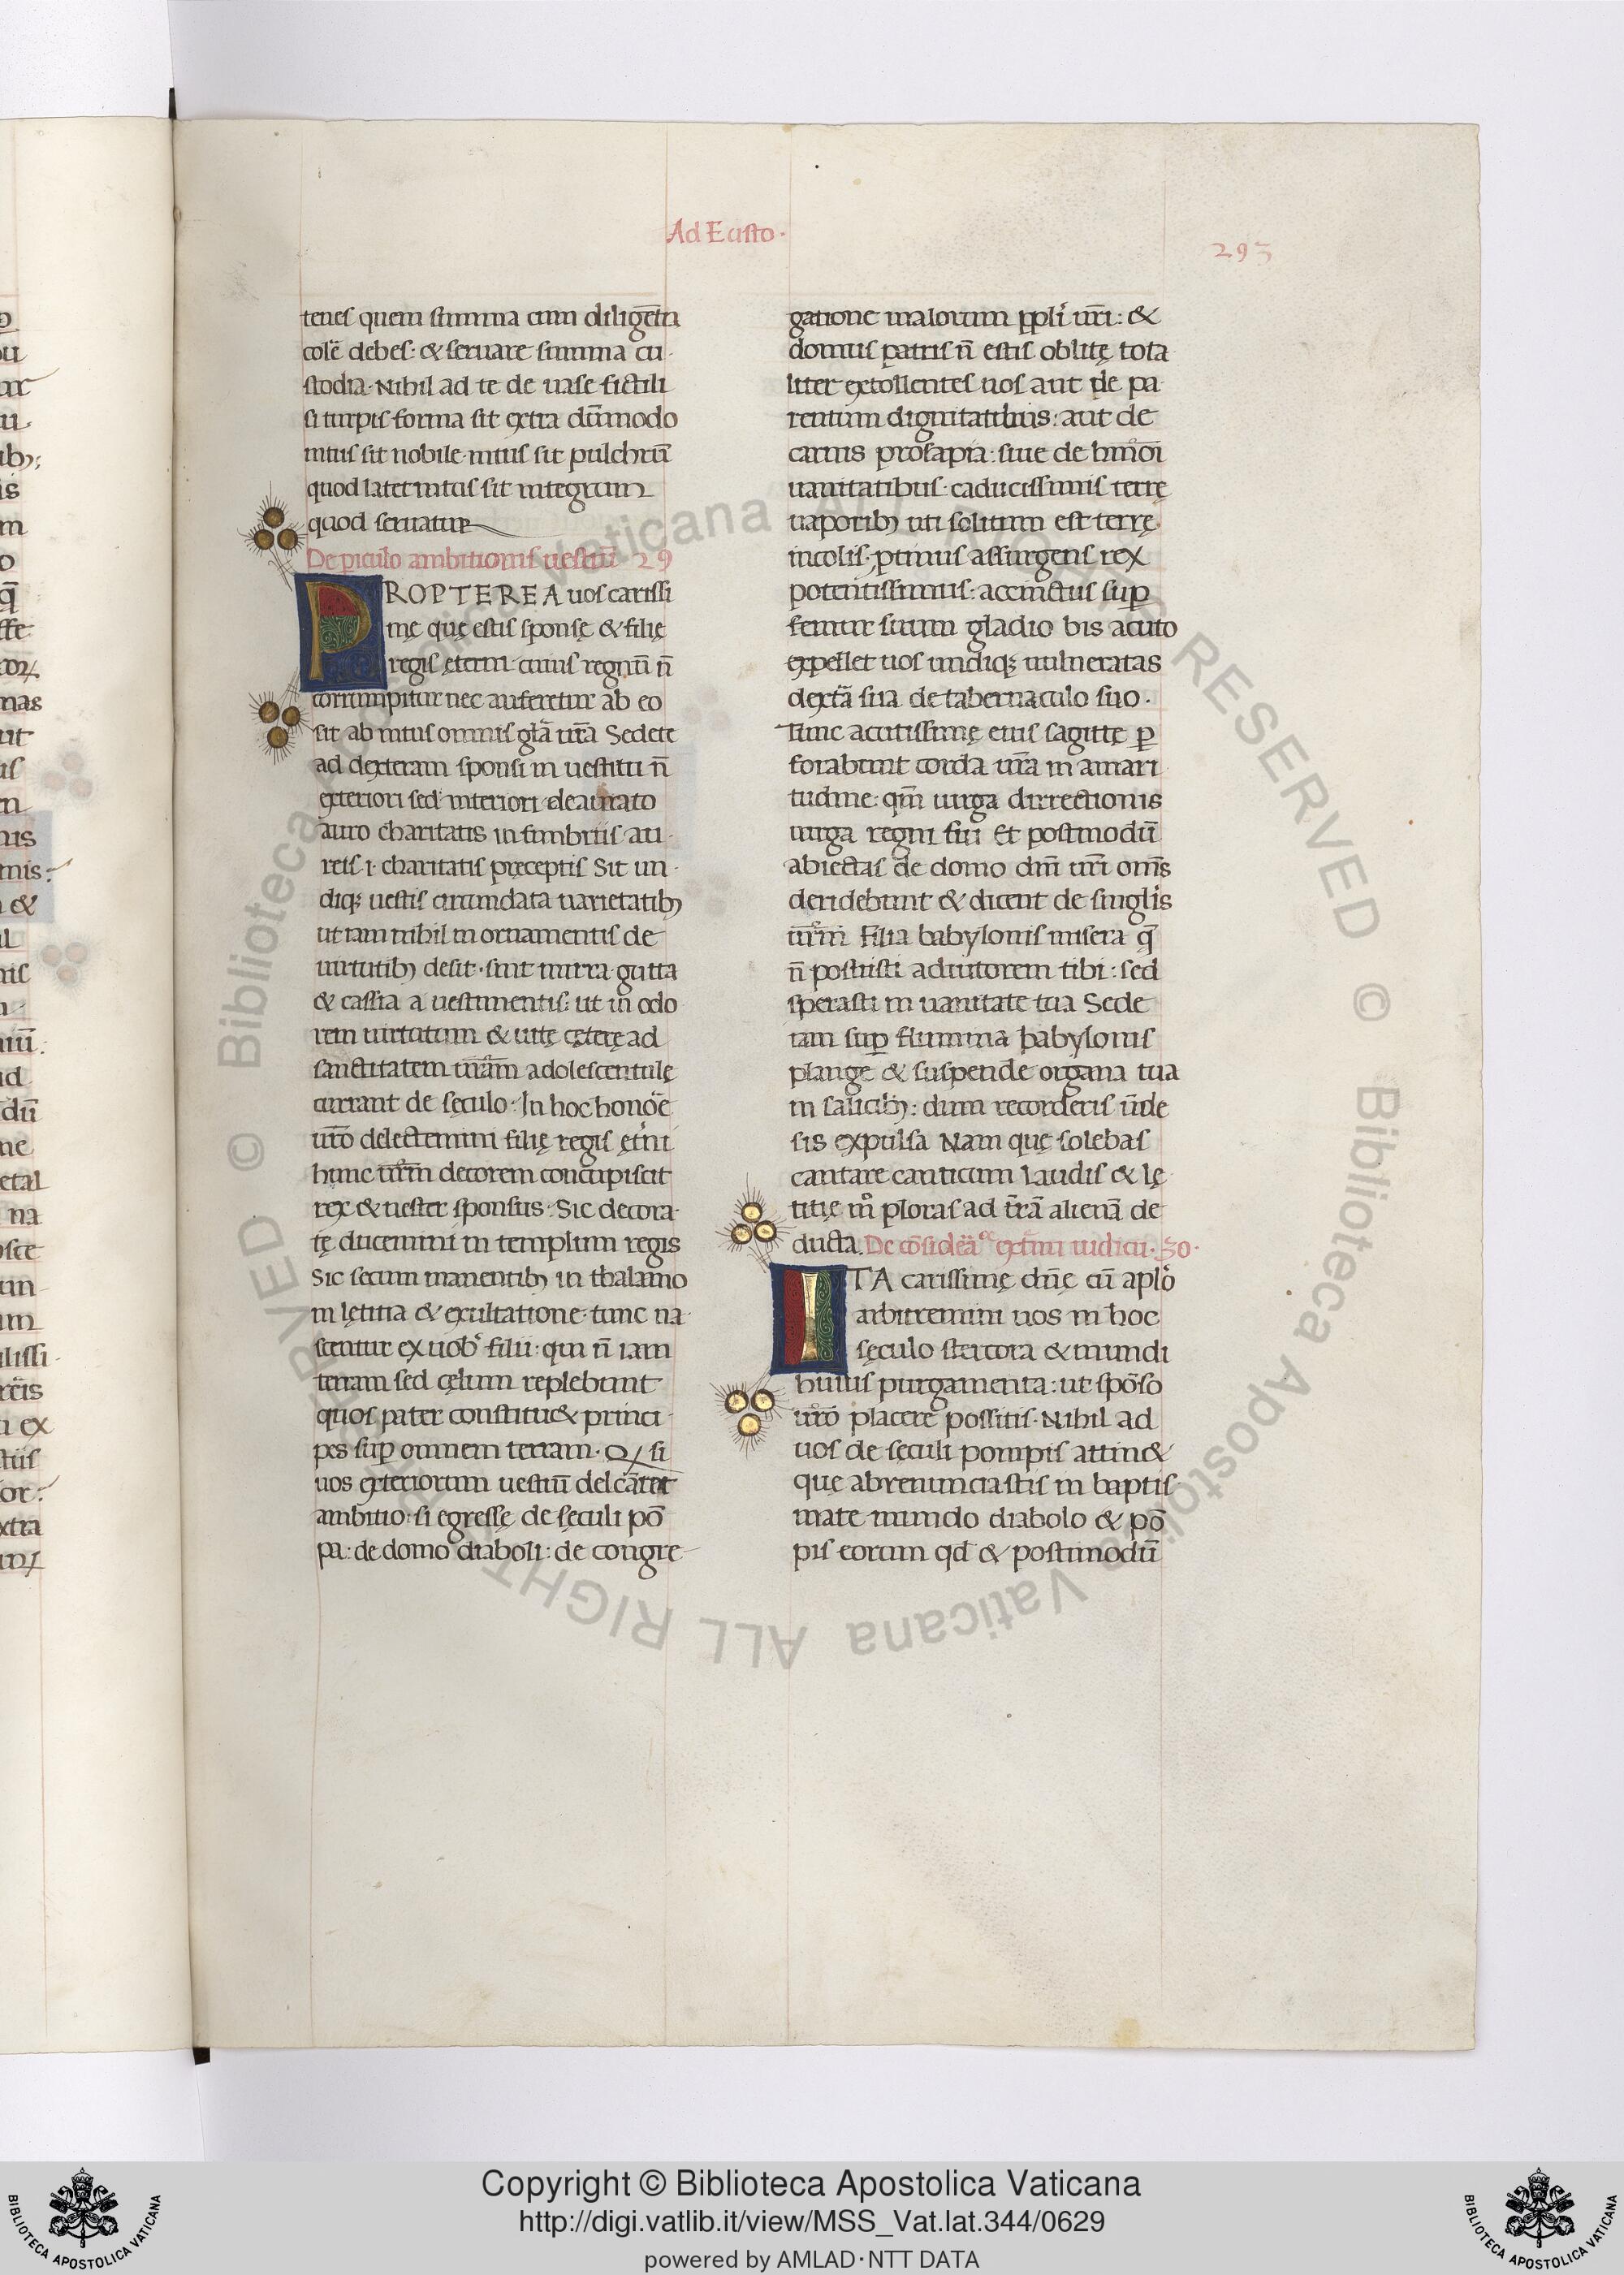 Ad Eusto·
293
tenes quem summa cum diligētia
colē debes: & seruare summa cu
stodia· Nihil ad te de uase fictili
si turpis forma sit extra dūmodo
intus sit nobile· intus sit pulchrū
quod latet intus sit integrum
quod seruatur
De piculo ambitionis uestiū 29
PROPTEREA uos carissi
mę quę estis sponsę & filię
regis ęterni cuius regnū n̄
corrumpitur nec auferetur ab eo
sit ab intus omnis glā urā Sedete
ad dexteram sponsi in uestitu n̄
exteriori sed interiori deaurato
auro charitatis in fimbriis au
reis·i· charitatis pręceptis Sit un
diqȝ uestis circundata uarietatibȝ
ut iam nihil in ornamentis de
uirtutibȝ desit· sint mirra gutta
& cassia a uestimentis: ut in odo
rem uirtutum & uitę cęterę ad
sanctitatem urām adolescentulę
currant de sęculo· In hoc honoē
urō delectemini filię regis ęt'ni
hunc urm̄ decorem concupiscit
rex & uester sponsus· Sic decora
tę ducemini in templum regis
Sic secum manentibȝ in thalamo
in lętitia & exultatione· tunc na
scentur ex uob' filii: qui n̄ iam
terram sed cęlum replebunt
quos pater constitu& princi
pes sup omnem terram· Qꝫ si
uos exteriorum uestiū delcātet
ambitio: si egressę de sęculi pō
pa: de domo diaboli: de congre
gatione malorum ppl'i uri: &
domus patris n̄ estis oblitę tota
liter extollentes uos aut de pa
rentum dignitatibus: aut de
carnis prosapia: siue de hmōi
uanitatibus caducissimis terrę
uaporibȝ uti solitum est terrę
incolis; ptinus assurgens rex
potentissimus: accinctus sup
femur suum gladio bis acuto
expellet uos undiqȝ uulneratas
dextā sua de tabernaculo suo·
Tunc acutissimę eius sagittę p
forabunt corda urā in amari
tudine: qm̄ uirga dirrectionis
uirga regni sui Et postmodū
abiectas de domo dni uri om̄s
deridebunt & dicent de singlis
urm̄ Filia babylonis misera q̄
n̄ posuisti adiutorem tibi: sed
sperasti in uanitate tua Sede
iam sup flumina babylonis
plange & suspende organa tua
in salicibȝ: dum recorderis ūde
sis expulsa Nam quę solebas
cantare canticum laudis & lę
titię mº ploras ad trā alienā de
ducta. De cōsideā'e extimi iudicii· 30·
ITA carissimę dnę cū aplo
arbitremini uos in hoc
sęculo stercora & mundi
huius purgamenta: ut spōso
urō placere possitis· Nihil ad
uos de sęculi pompis attin&
que abrenunciastis in baptis
mate mundo diabolo & pō
pis eorum qd & postmodū
Copyright © Biblioteca Apostolica Vaticana
http://digi.vatlib.it/view/MSS_Vat.lat.344/0629
powered by AMLAD·NTT DATA
BIBLIOTECA APOSTOLICA VATICANA
BIBLIOTECA APOSTOLICA VATICANA